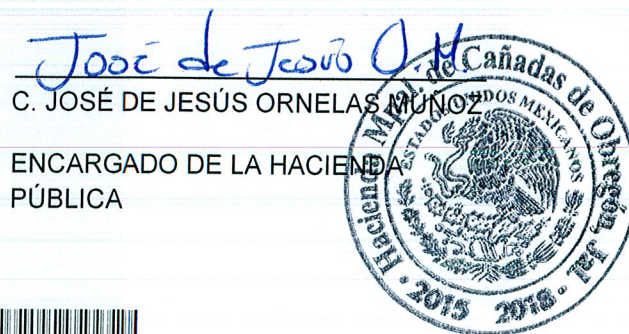 José de Jesús O.M.
C. JOSÉ DE JESÚS ORNELAS MUÑOZ
ENCARGADO DE LA HACIENDA
PÚBLICA
Hacienda Mpal. de Cañadas de Obregón, Jal.
ESTADOS UNIDOS MEXICANOS
2015 2018